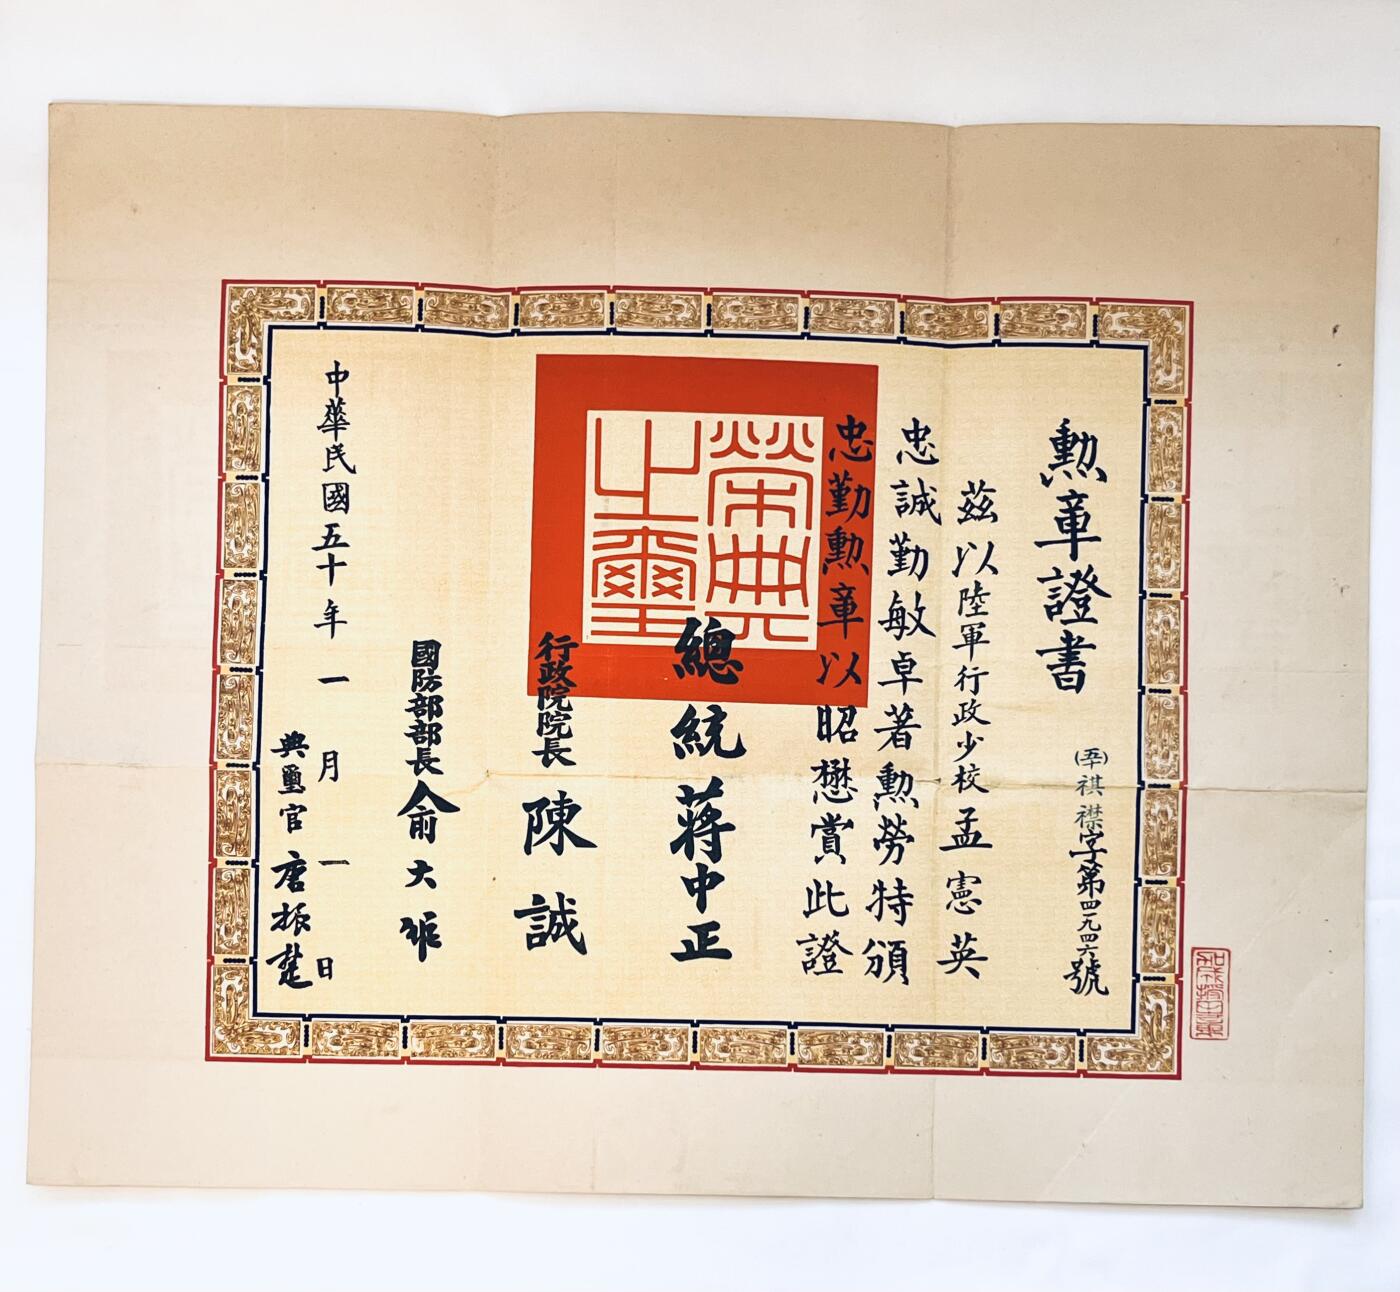 勳章證書
(五〇)祺襟字第四九四六號
茲以陸軍行政少校孟憲英
忠誠勤敏卓著勳勞特頒
忠勤勳章以昭懋賞此證
榮典之璽
總統蔣中正
行政院院長陳誠
國防部部長俞大維
中華民國五十年一月一日
典璽官唐振楚